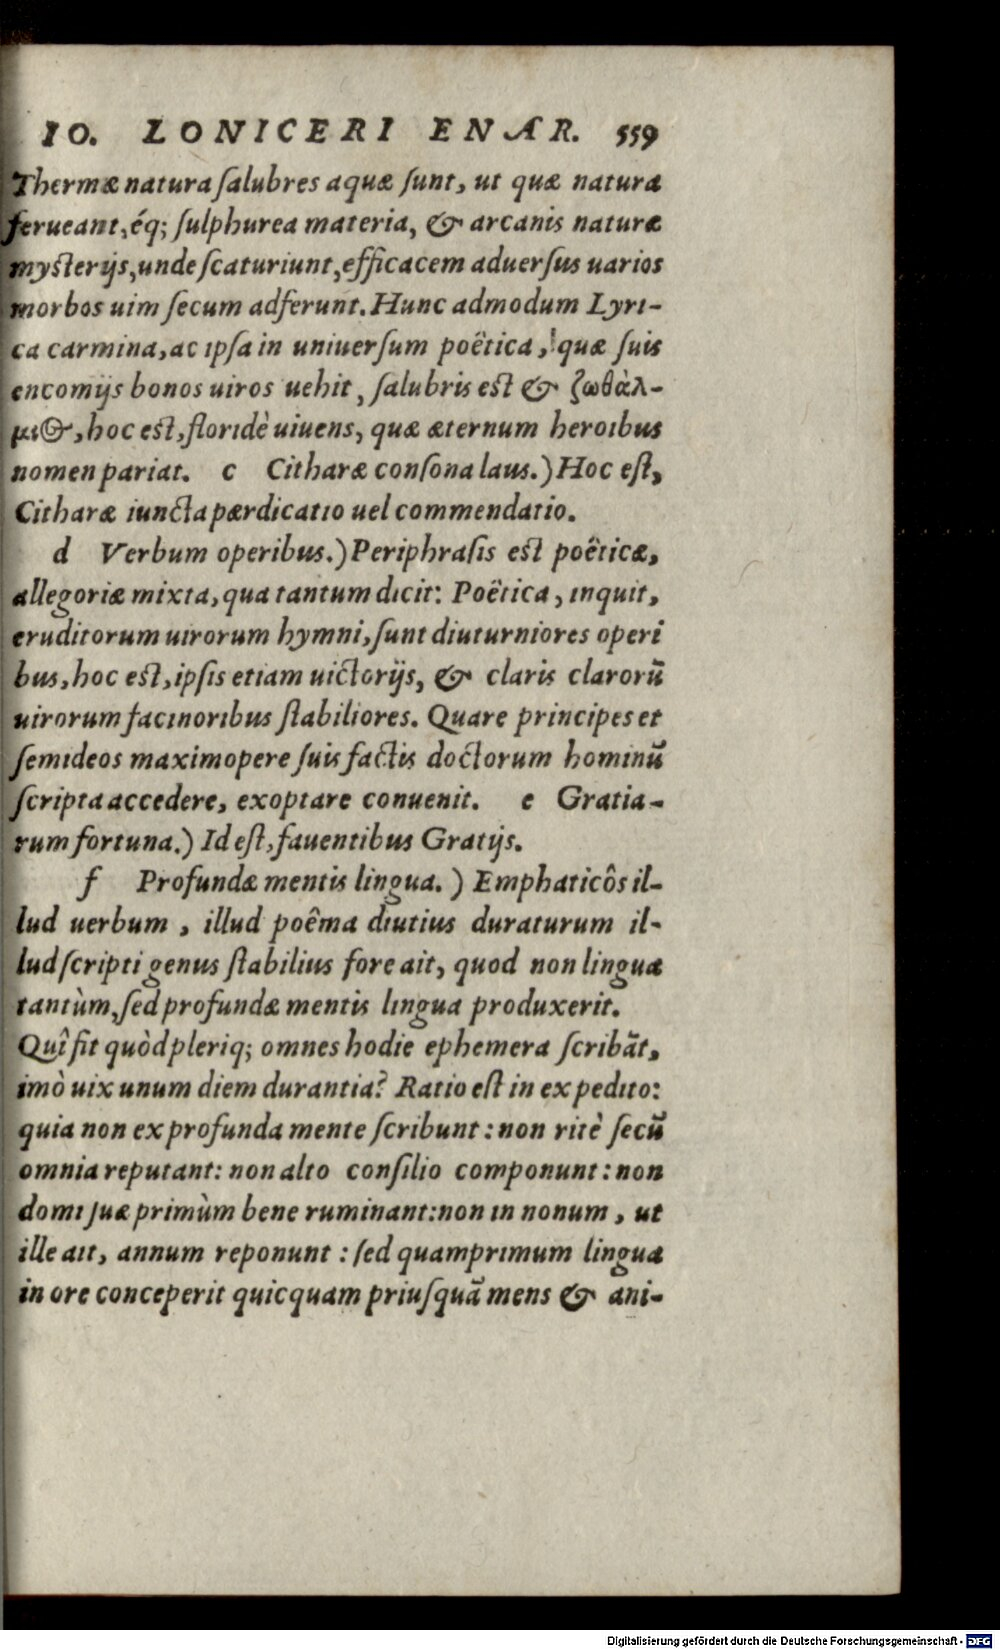 IO. LONICERI ENAR. 559
Thermæ natura ſalubres aquæ ſunt, ut quæ natura
ferueant, éq; ſulphurea materia, & arcanis naturæ
myſterijs, unde ſcaturiunt, efficacem aduerſus uarios
morbos uim ſecum adferunt. Hunc admodum Lyri-
ca carmina, ac ipſa in uniuerſum poëtica, quæ ſuis
encomijs bonos uiros uehit, ſalubris eſt & ζωθὰλ-
μι⊕, hoc eſt, floridè uiuens, quæ æternum heroibus
nomen pariat. c Citharæ conſona laus.) Hoc eſt,
Citharæ iuncta pærdicatio uel commendatio.
d Verbum operibus.) Periphraſis eſt poëticæ,
allegoriæ mixta, qua tantum dicit: Poëtica, inquit,
eruditorum uirorum hymni, ſunt diuturniores operi
bus, hoc eſt, ipſis etiam uictorijs, & claris clarorū
uirorum facinoribus ſtabiliores. Quare principes et
ſemideos maximopere ſuis factis doctorum hominū
ſcripta accedere, exoptare conuenit. e Gratia-
rum fortuna.) Id eſt, fauentibus Gratijs.
f Profundæ mentis lingua.) Emphaticôs il-
lud uerbum, illud poêma diutius duraturum il-
lud ſcripti genus ſtabilius fore ait, quod non lingua
tantùm, ſed profundæ mentis lingua produxerit.
Quî fit quòd pleriq; omnes hodie ephemera ſcribāt,
imò uix unum diem durantia? Ratio eſt in expedito:
quia non ex profunda mente ſcribunt: non ritè ſecū
omnia reputant: non alto conſilio componunt: non
domi ſuæ primùm bene ruminant: non in nonum, ut
ille ait, annum reponunt: ſed quamprimum lingua
in ore conceperit quicquam priuſquā mens & ani-
Digitalisierung gefördert durch die Deutsche Forschungsgemeinschaft - DFG